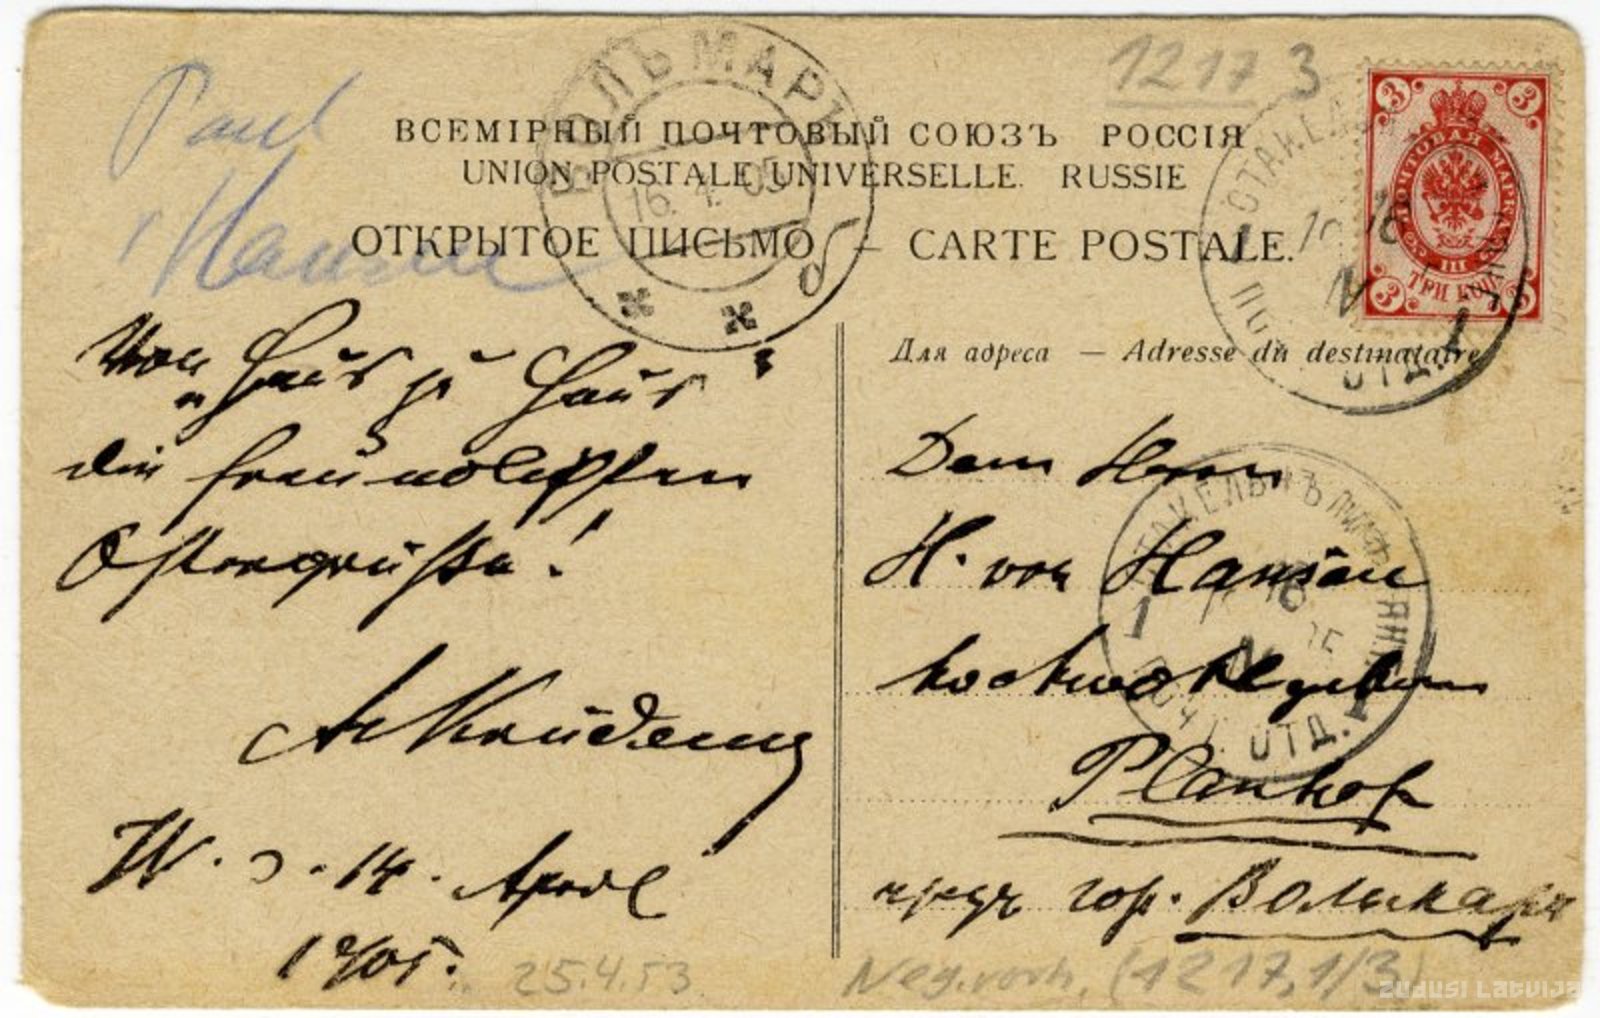 1217 3
Paul
Hansen
ВОЛЬМАРЪ
16.4.05
б
ВСЕМІРНЫЙ ПОЧТОВЫЙ СОЮЗЪ РОССІЯ
UNION POSTALE UNIVERSELLE. RUSSIE
ОТКРЫТОЕ ПИСЬМО — CARTE POSTALE.
3 3
ПОЧТОВАЯ МАРКА
ТРИ КОП.
3 3
Для адреса — Adresse du destinataire
Von
„Haus zu Haus"
die freundlichsten
Ostergrüsse!
W. d. 14. April
1905.
Dem Herrn
H. von Hansen
hochwohlgeboren
Planhof
чрезъ гор. Вольмаръ
1 ПОЧТ. ОТД. 1
25.4.53
Neg. vorh. (1217,1/3)
ZUDUSI LATVIJA